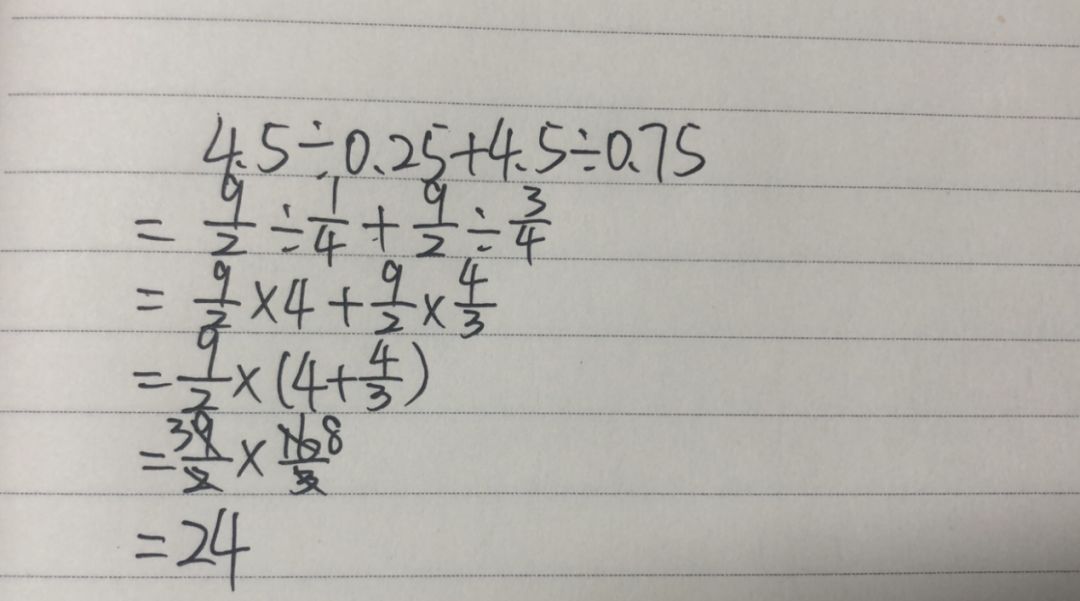 4.5÷0.25+4.5÷0.75
= 9/2 ÷ 1/4 + 9/2 ÷ 3/4
= 9/2 ×4 + 9/2 × 4/3
= 9/2 × (4+ 4/3)
= 3 9/2 × 16 8/3
= 24